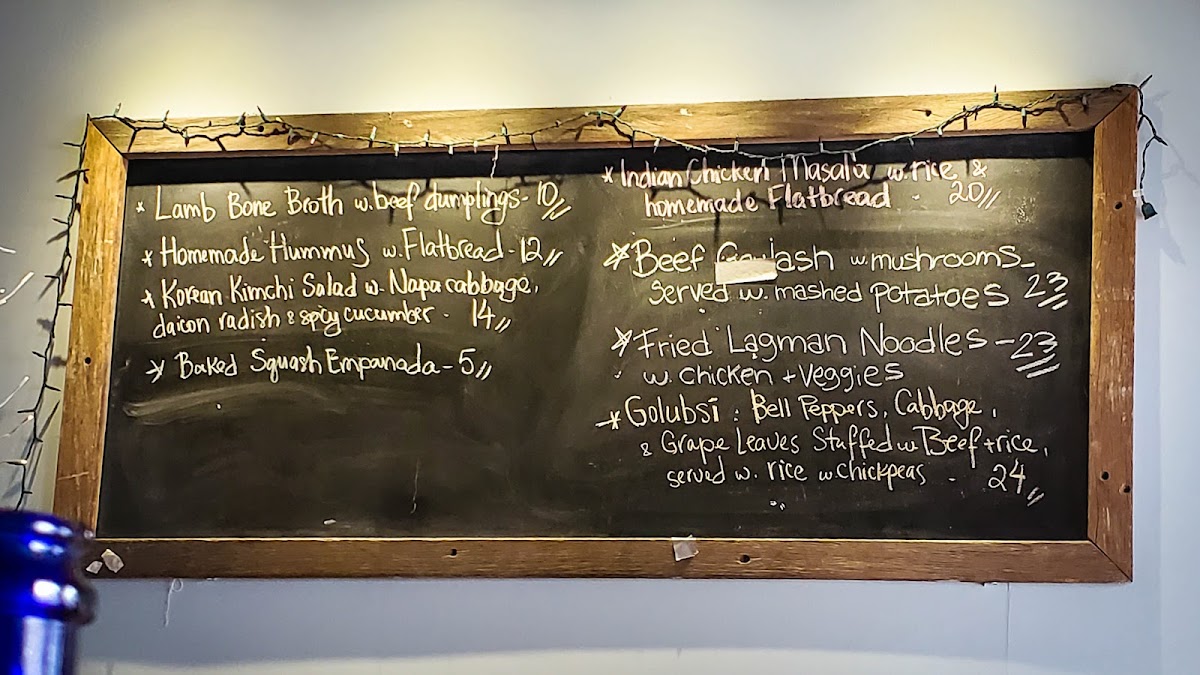 * Lamb Bone Broth w. beef dumplings - 10//
* Homemade Hummus w. Flatbread - 12//
* Korean Kimchi Salad w. Napa cabbage,
daicon radish & spicy cucumber - 14//
* Baked Squash Empanada - 5//
* Indian Chicken Masala w. rice &
homemade Flatbread - 20//
* Beef Goulash w. mushrooms -
served w. mashed potatoes 23
* Fried Lagman Noodles - 23
w. chicken + veggies
* Golubsi : Bell Peppers, Cabbage,
& Grape Leaves Stuffed w. Beef + rice,
served w. rice w. chickpeas - 24//